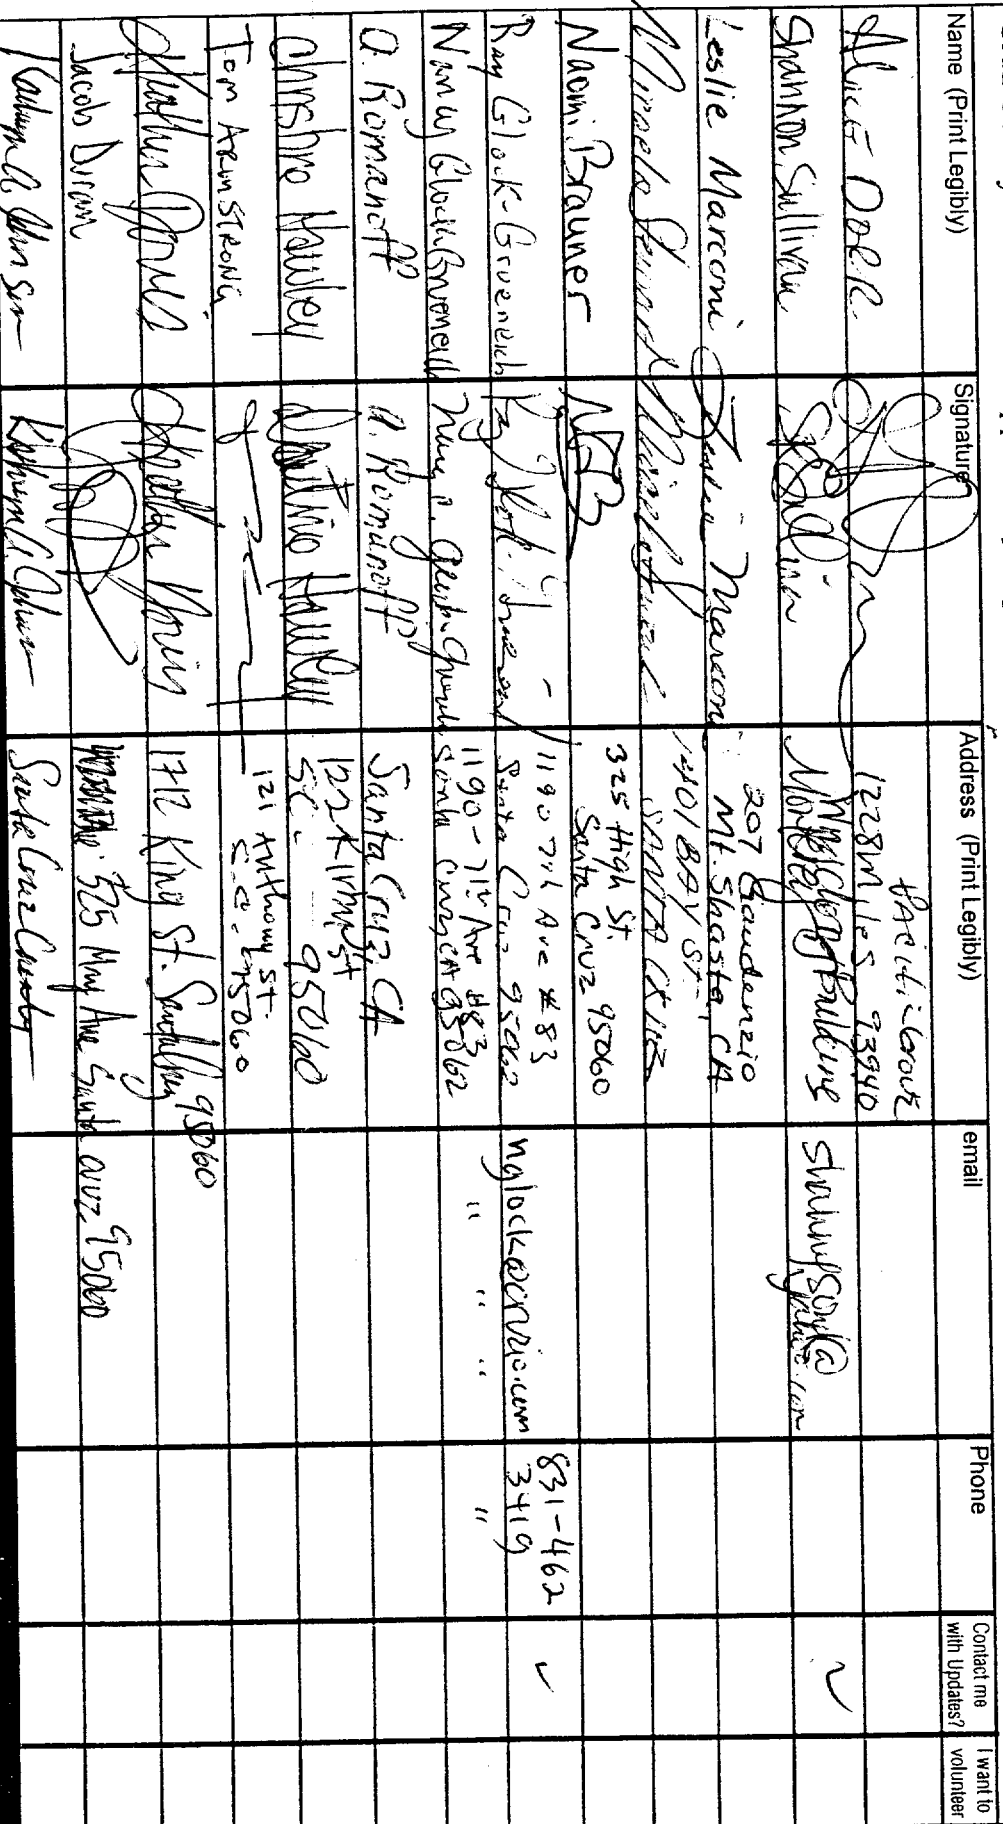 Name (Print Legibly) Signature Address (Print Legibly) email Phone Contact me with Updates? I want to volunteer
Alice Doer
Pacific Grove
1228 Miles 93940
Shannon Sullivan
@yahoo.com
Leslie Marconi Leslie Marconi
207 Gaudenzio
Mt. Shasta, CA
1401 BAY ST.
SANTA CRUZ
Naomi Brauner NB
325 High St.
Santa Cruz 95060
Ray Glock-Grueneich
1190 7th Ave #83
Santa Cruz 95062
nglock@cruzio.com
831-462
3419
Nancy Glock-Grueneich
1190-7th Ave #83
Santa Cruz CA 95062
" " " "
A. Romanoff A. Romanoff Santa Cruz, CA
Christine Hawley Christine Hawley
122 Kirby St
S.C. 95060
Tom ARMSTRONG
121 Anthony ST.
S.C. 95060
Heather
1712 King St. 95060
Jacob
525 May Ave Santa Cruz 95060
Kathryn A. Johnson Kathryn A. Johnson Santa Cruz County